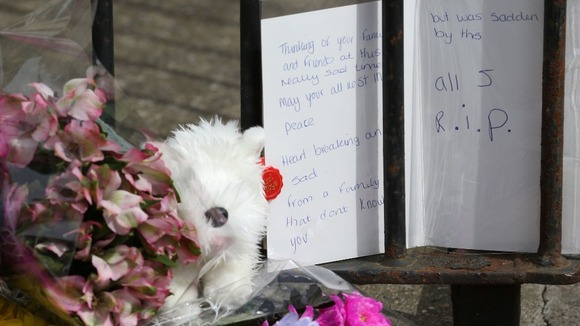 Thinking of your family
and friends at this
really sad time
May your all rest in
peace
Heart breaking and
sad
from a family
that dont know
you
but was sadden
by this
all J
R.i.P.